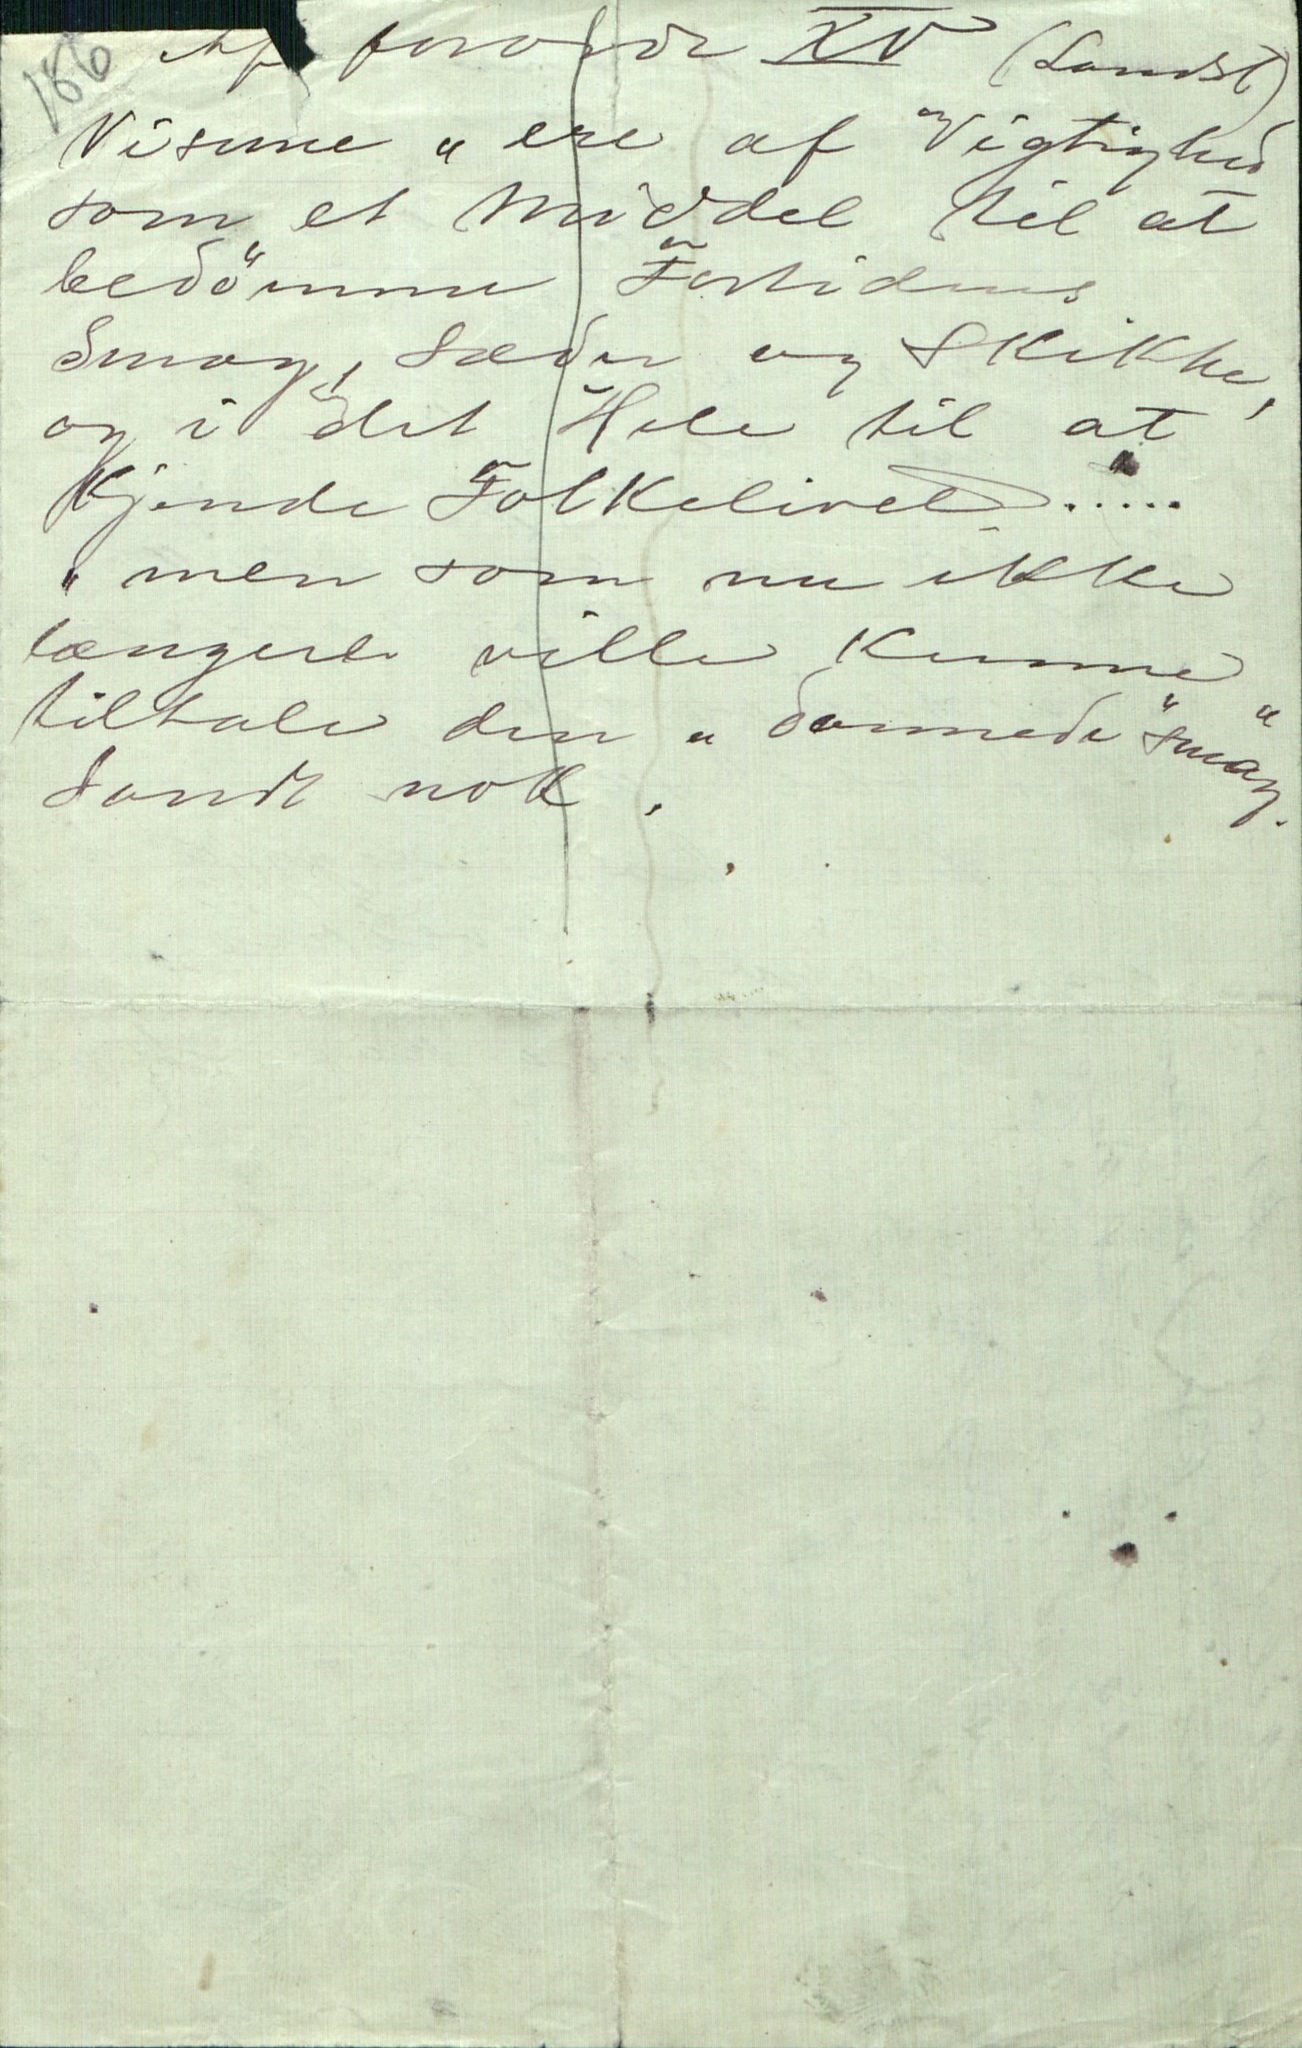 186
Af forordr XV (Landst)
Viserne "ere af Vigtighed
som et Middel til at
bedömme Fortidens
Smag, Sæder og Skikke,
og i det Hele til at
Kjende Folkelivet .....
"men som nu ikke
længere ville Kunne
tiltale den "dannede" smag."
Sandt nok.